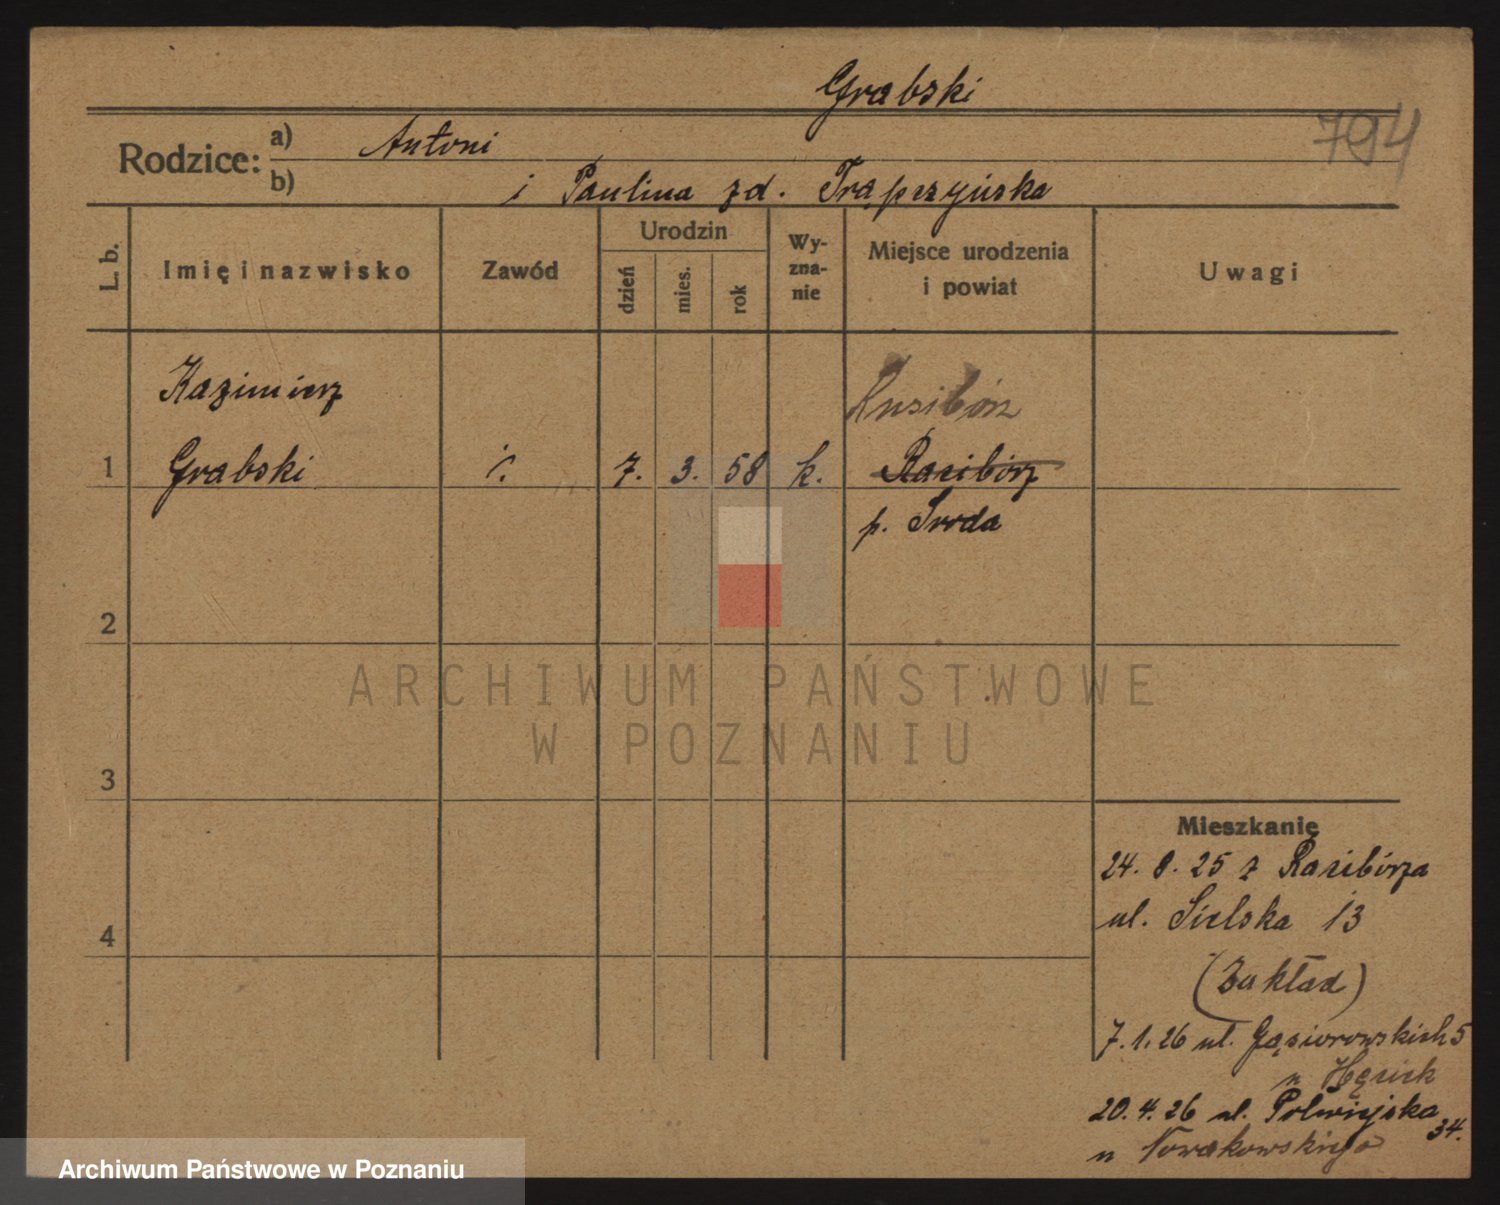 Grabski
794
Rodzice: a) Antoni
b) i Paulina zd. Trąpczyńska
L. b.
Imię i nazwisko
Zawód
Urodzin
dzień
mies.
rok
Wy-
zna-
nie
Miejsce urodzenia
i powiat
Uwagi
Kazimierz
1 Grabski
7. 3. 58 k.
Rasibórz
p. Środa
2
3
4
ARCHIWUM PAŃSTWOWE
W POZNANIU
Mieszkanie
24. 8. 25 z Rasibórza
ul. Sielska 13
(Zakład)
7. 1. 26 ul. Gąsiorowskich 5
20. 4. 26 ul. Półwiejska
34.
u Nowakowskiego
Archiwum Państwowe w Poznaniu